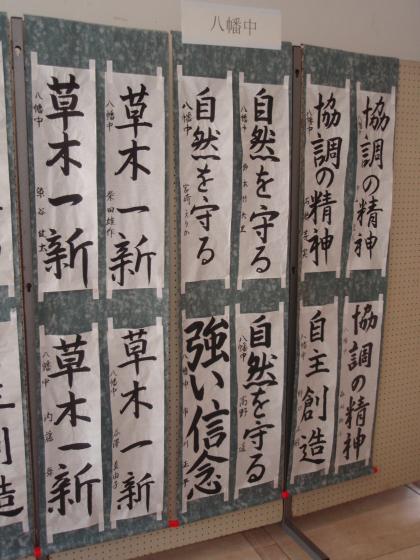 八幡中
協調の精神
八幡中
協調の精神
八幡中
自然を守る
八幡中
自然を守る
八幡中
宮崎えりか
草木一新
八幡中
柴田雄作
草木一新
八幡中
協調の精神
自主創造
八幡中
自然を守る
八幡中
高野
強い信念
八幡中
市川正平
草木一新
八幡中
草木一新
八幡中
内藤
主創造